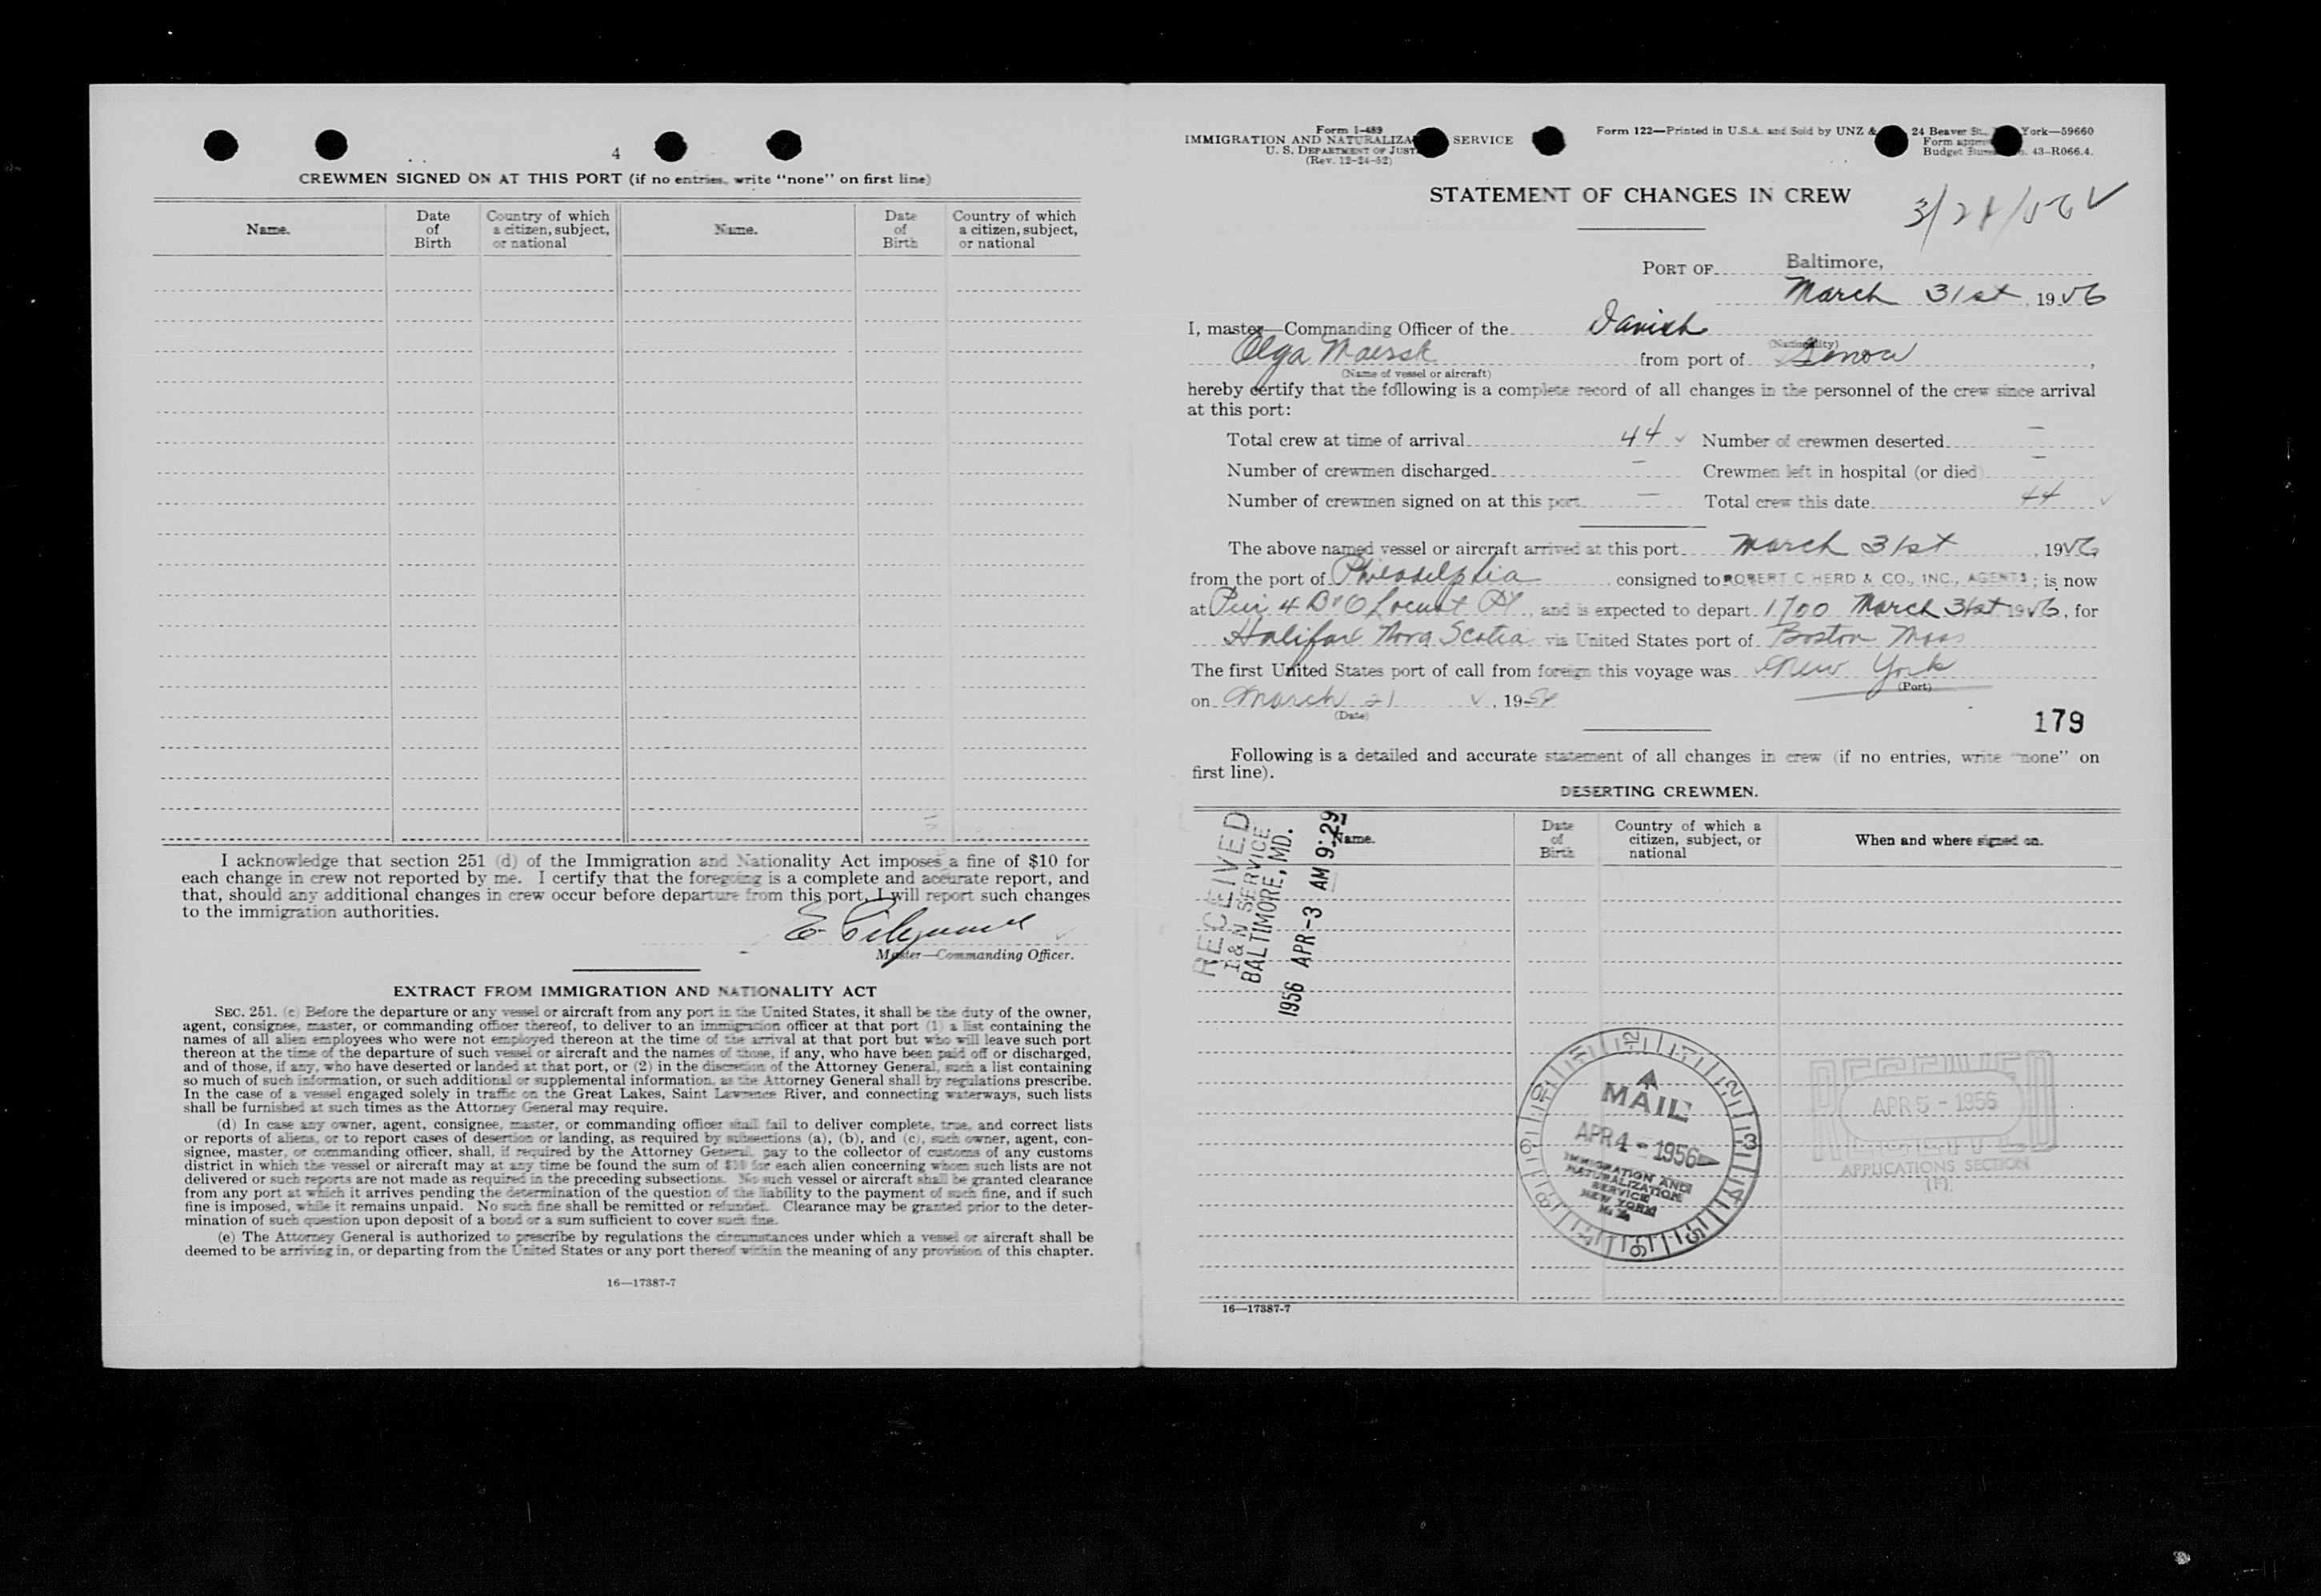 4
CREWMEN SIGNED ON AT THIS PORT (if no entries, write "none" on first line)
Name. Date of Birth Country of which a citizen, subject, or national Name. Date of Birth Country of which a citizen, subject, or national
I acknowledge that section 251 (d) of the Immigration and Nationality Act imposes a fine of $10 for
each change in crew not reported by me. I certify that the foregoing is a complete and accurate report, and
that, should any additional changes in crew occur before departure from this port, I will report such changes
to the immigration authorities.
E.
Master—Commanding Officer.
EXTRACT FROM IMMIGRATION AND NATIONALITY ACT
SEC. 251. (c) Before the departure or any vessel or aircraft from any port in the United States, it shall be the duty of the owner,
agent, consignee, master, or commanding officer thereof, to deliver to an immigration officer at that port (1) a list containing the
names of all alien employees who were not employed thereon at the time of the arrival at that port but who will leave such port
thereon at the time of the departure of such vessel or aircraft and the names of those, if any, who have been paid off or discharged,
and of those, if any, who have deserted or landed at that port, or (2) in the discretion of the Attorney General, such a list containing
so much of such information, or such additional or supplemental information, as the Attorney General shall by regulations prescribe.
In the case of a vessel engaged solely in traffic on the Great Lakes, Saint Lawrence River, and connecting waterways, such lists
shall be furnished at such times as the Attorney General may require.
(d) In case any owner, agent, consignee, master, or commanding officer shall fail to deliver complete, true, and correct lists
or reports of aliens, or to report cases of desertion or landing, as required by subsections (a), (b), and (c), such owner, agent, con-
signee, master, or commanding officer, shall, if required by the Attorney General, pay to the collector of customs of any customs
district in which the vessel or aircraft may at any time be found the sum of $10 for each alien concerning whom such lists are not
delivered or such reports are not made as required in the preceding subsections. No such vessel or aircraft shall be granted clearance
from any port at which it arrives pending the determination of the question of the liability to the payment of such fine, and if such
fine is imposed, while it remains unpaid. No such fine shall be remitted or refunded. Clearance may be granted prior to the deter-
mination of such question upon deposit of a bond or a sum sufficient to cover such fine.
(e) The Attorney General is authorized to prescribe by regulations the circumstances under which a vessel or aircraft shall be
deemed to be arriving in, or departing from the United States or any port thereof within the meaning of any provision of this chapter.
16—17387-7
Form I-489
IMMIGRATION AND NATURALIZA SERVICE
U. S. DEPARTMENT OF JUST
(Rev. 12-24-52)
Form 122—Printed in U.S.A. and Sold by UNZ & 24 Beaver St., York—59660
Form
Budget 43-R066.4.
STATEMENT OF CHANGES IN CREW
3/28/56 ✓
PORT OF Baltimore,
March 31st, 1956
I, master—Commanding Officer of the Danish
(Nationality)
Olga Maersk from port of Genoa,
(Name of vessel or aircraft)
hereby certify that the following is a complete record of all changes in the personnel of the crew since arrival
at this port:
Total crew at time of arrival 44 ✓ Number of crewmen deserted —
Number of crewmen discharged — Crewmen left in hospital (or died) —
Number of crewmen signed on at this port — Total crew this date 44 ✓
The above named vessel or aircraft arrived at this port March 31st, 1956
from the port of Philadelphia consigned to ROBERT C HERD & CO., INC., AGENTS; is now
at Pier 4 B&O Locust Pt, and is expected to depart 1700 March 31st 1956, for
Halifax Nova Scotia via United States port of Boston Mass
The first United States port of call from foreign this voyage was New York
(Port)
on March 21 ✓, 19
(Date)
179
Following is a detailed and accurate statement of all changes in crew (if no entries, write "none" on
first line).
DESERTING CREWMEN.
Name. Date of Birth Country of which a citizen, subject, or national When and where signed on.
RECEIVED
I & N SERVICE
BALTIMORE, MD.
1956 APR-3 AM 9:29
MAIL
APR 4 - 1956
IMMIGRATION AND
NATURALIZATION
SERVICE
NEW YORK
RECEIVED
APR 5 - 1956
APPLICATIONS SECTION
16—17387-7